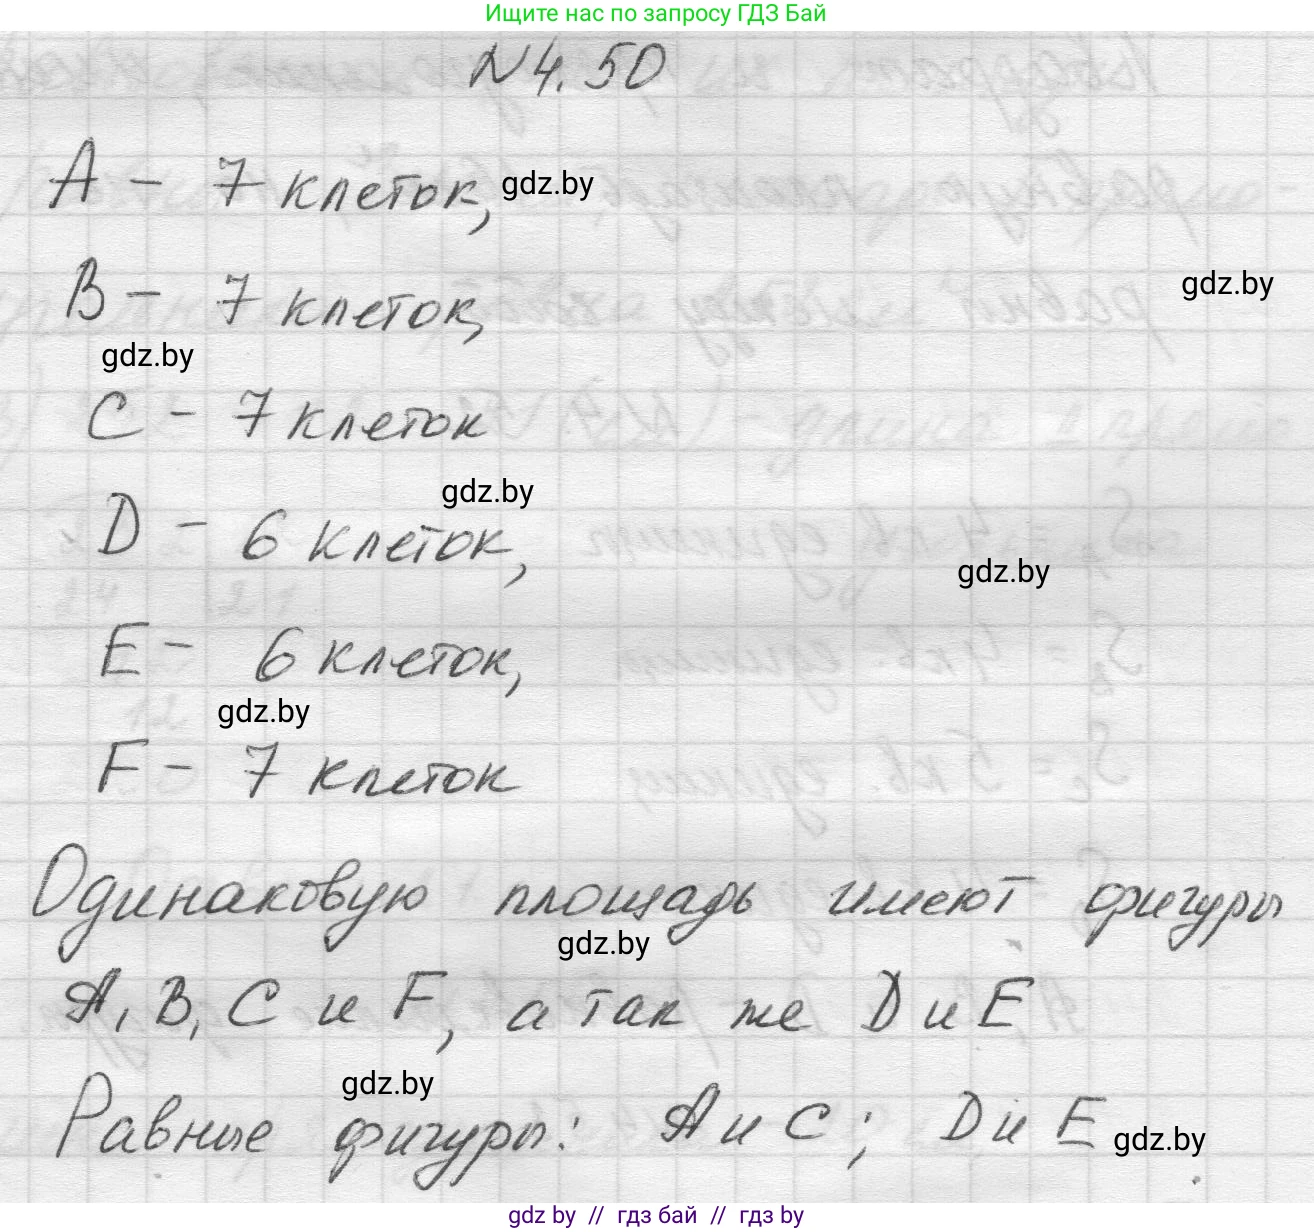 Ищите нас по запросу ГДЗ Бай
N 4.50
A - 7 клеток, gdz.by
B - 7 клеток,
gdz.by
gdz.by
C - 7 клеток
gdz.by
D - 6 клеток,
gdz.by
E - 6 клеток,
gdz.by
F - 7 клеток
Одинаковую площадь имеют фигуры
gdz.by
A, B, C и F, а так же D и E
gdz.by
Равные фигуры: A и C; D и E gdz.by
gdz by // гдз бай // гдз by